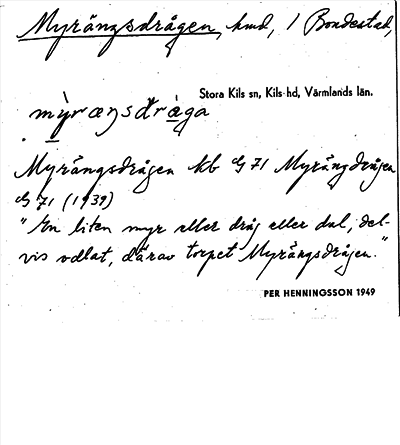 Myrängsdrågen, hmd, / Bondestad,
Stora Kils sn, Kils hd, Värmlands län.
mỳ̱ræŋsdrå̱ga
Myrängsdrågen kb G 71 Myrängdrågen
G 71 (1939)
"En liten myr eller dråg eller dal, del-
vis odlat, därav torpet Myrängsdrågen."
PER HENNINGSSON 1949